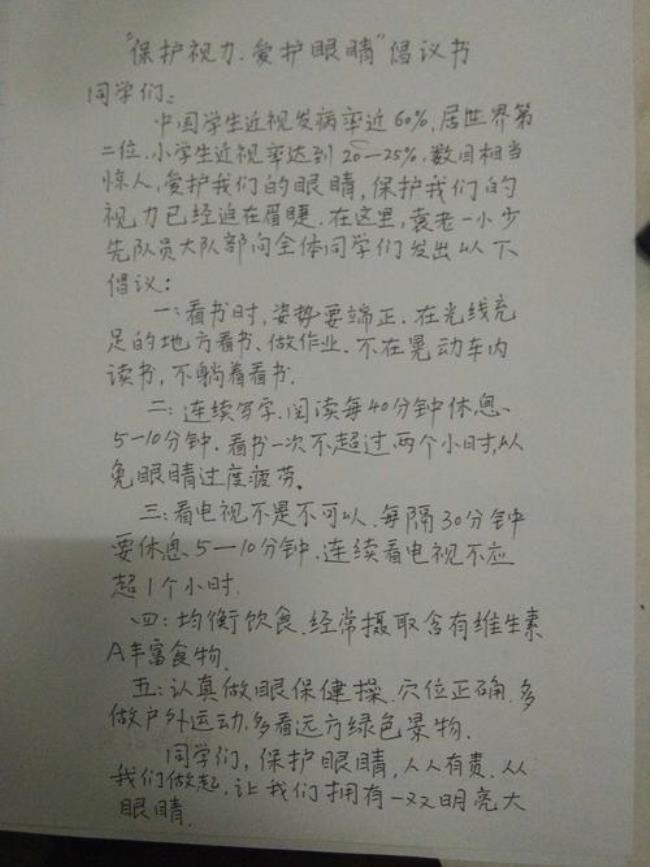 “保护视力、爱护眼睛”倡议书
同学们：
中国学生近视发病率近60%，居世界第
二位，小学生近视率达到20—25%，数目相当
惊人，爱护我们的眼睛，保护我们的
视力已经迫在眉睫．在这里，袁老一小少
先队员大队部向全体同学们发出以下
倡议：
一：看书时，姿势要端正．在光线充
足的地方看书、做作业．不在晃动车内
读书，不躺着看书．
二：连续写字、阅读每40分钟休息、
5—10分钟．看书一次不超过两个小时，以
免眼睛过度疲劳。
三：看电视不是不可以、每隔30分钟
要休息、5—10分钟、连续看电视不应
超1个小时．
四：均衡饮食、经常摄取含有维生素
A丰富食物．
五：认真做眼保健操、穴位正确、多
做户外运动，多看远方绿色景物．
同学们，保护眼睛，人人有责、从
我们做起，让我们拥有一双明亮大
眼睛．